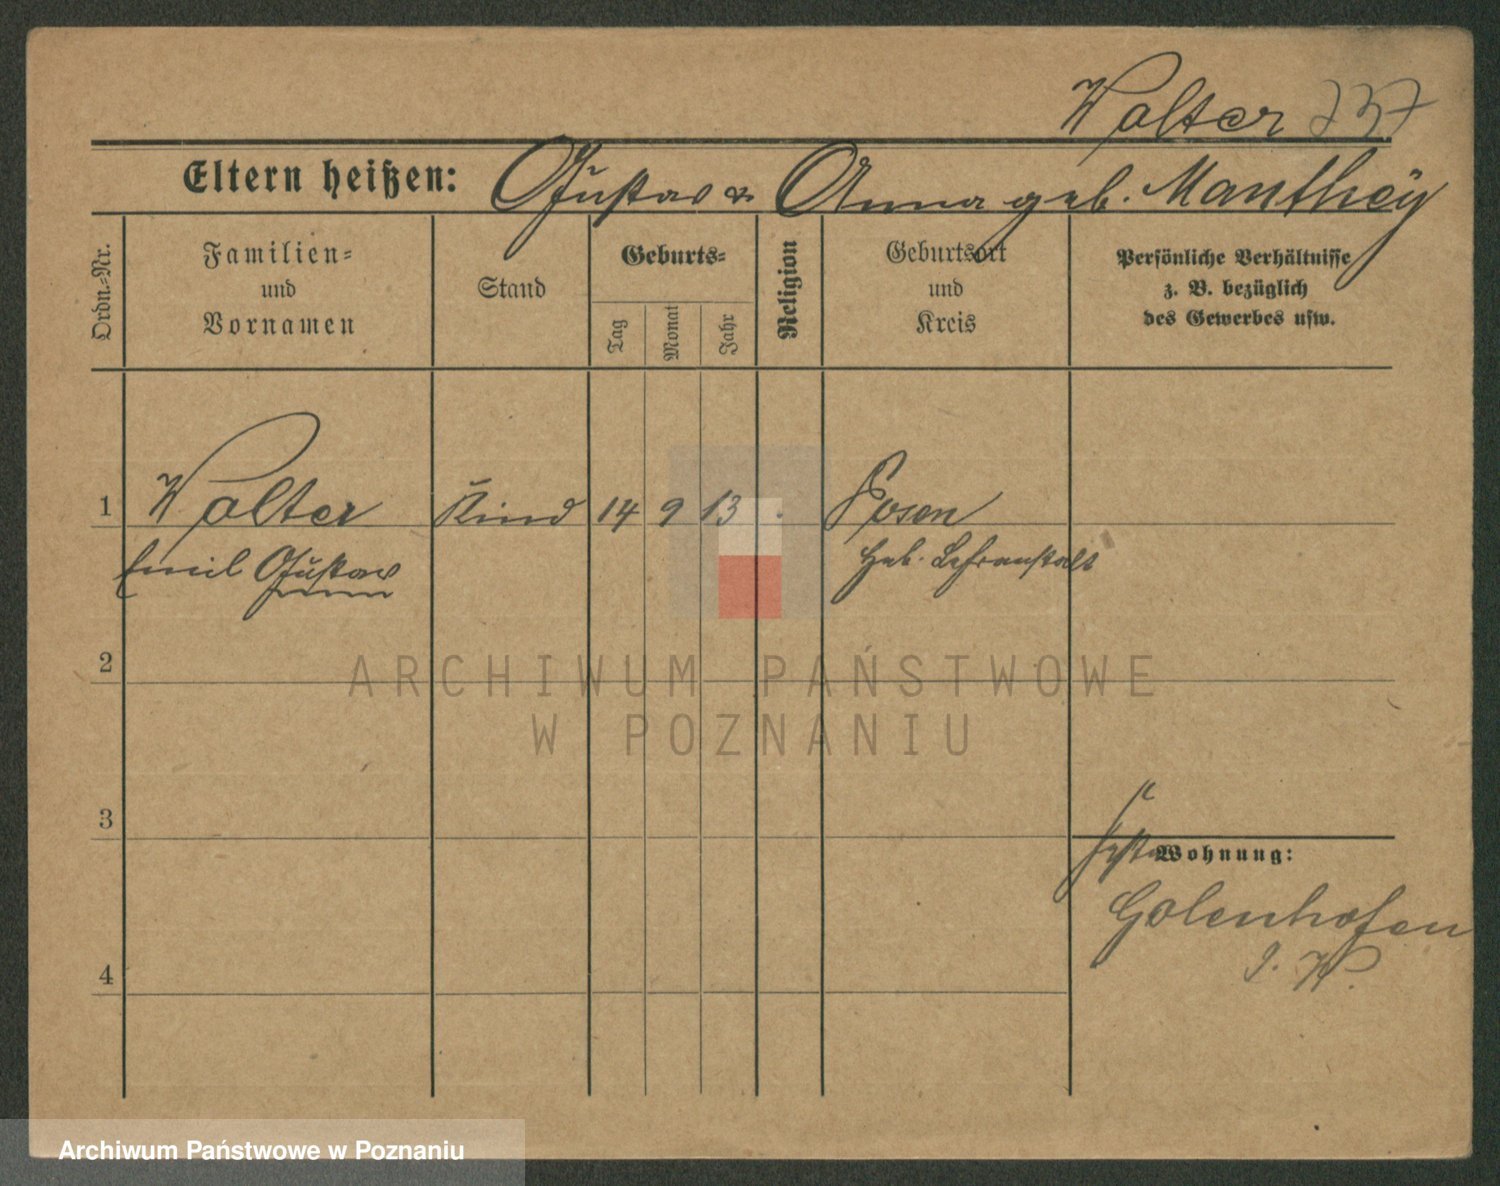 Walter 737
Eltern heißen: Gustav u. Anna geb. Manthey
Ordn.-Nr.
Familien-
und
Vornamen
Stand
Geburts-
Tag
Monat
Jahr
Religion
Geburtsort
und
Kreis
Persönliche Verhältnisse
z. B. bezüglich
des Gewerbes usw.
1 Walter Kind 14 9 13 Posen
Emil Gustav Heb. Lehranstalt
2
ARCHIWUM PAŃSTWOWE
W POZNANIU
3
Wohnung:
Golenhofen
4
Archiwum Państwowe w Poznaniu